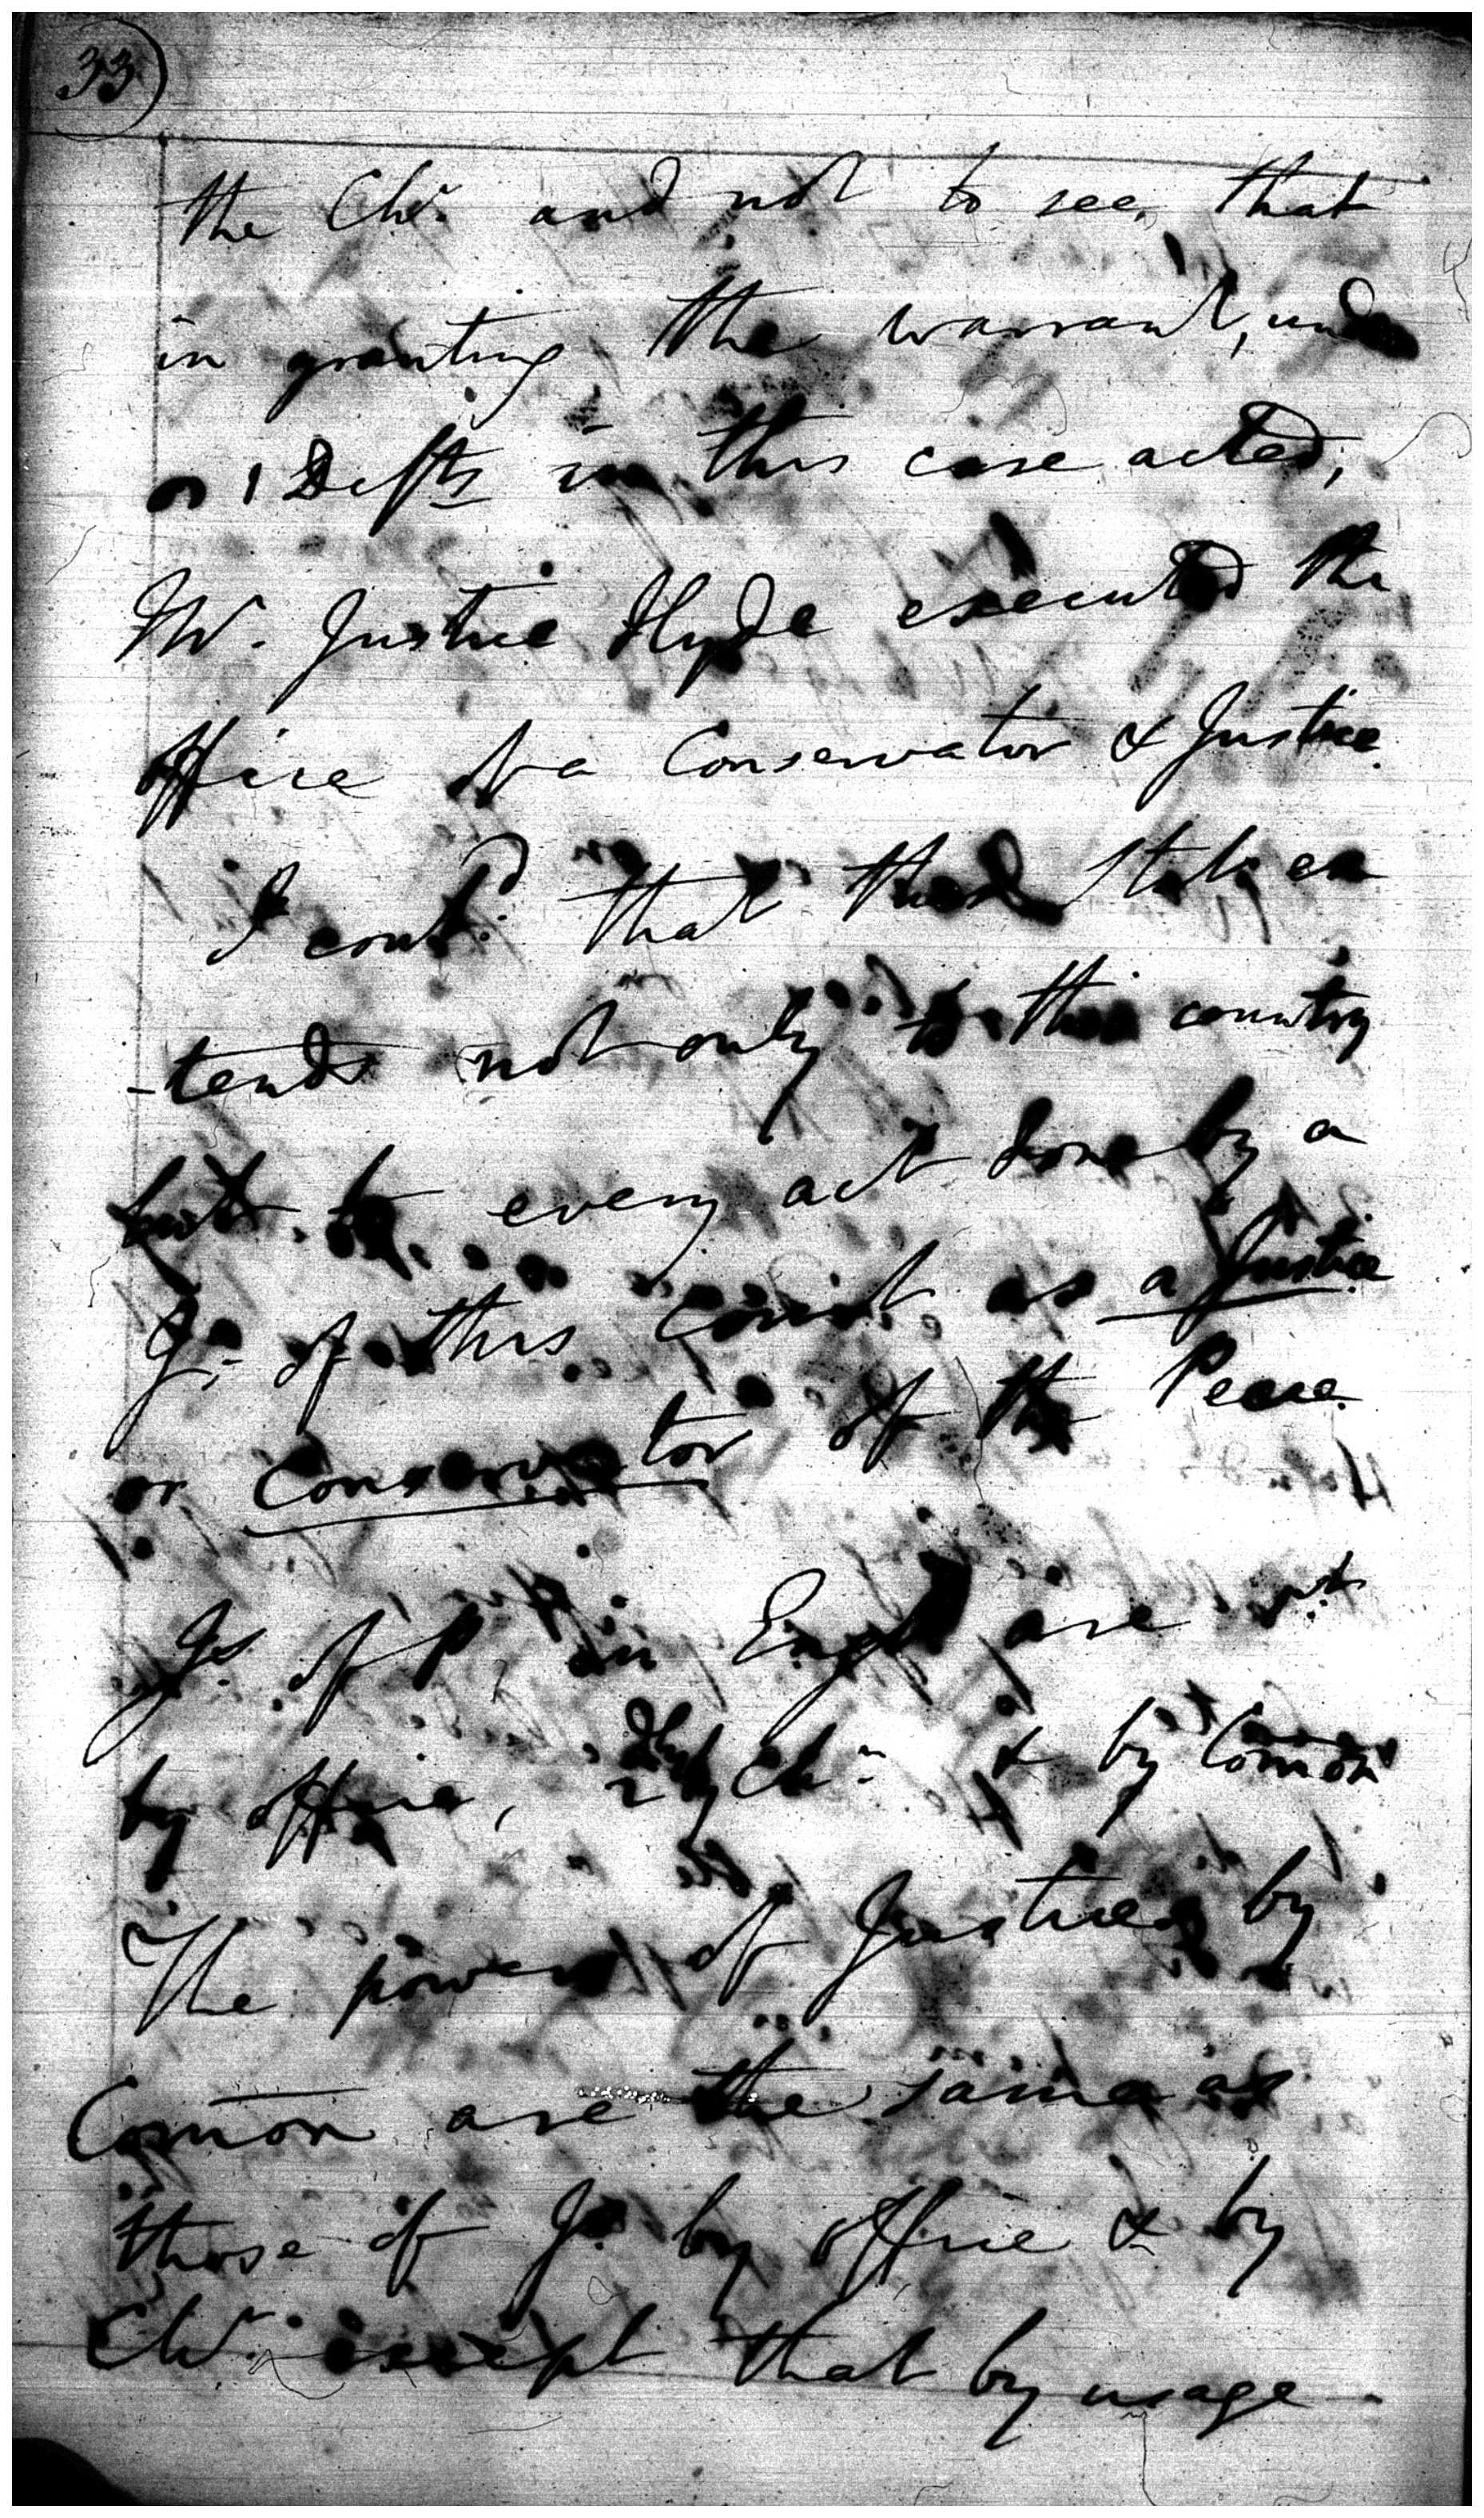 33
the Chr. and not to see, that
in granting the warrant, und
Defts in this case acted,
Mr. Justice Hyde executed the
office of a Conservator & Justice.
I contd. that the Stat. ex
-tends not only to this country
but to every act done by a
J. of this Court as a Justice
or Conservator of the Peace.
Js. of P. in Engd are 1st
by office, 2dly by Chr. & by Com̄on
The powers of Justices by
Com̄on are the same as
those of Js. by office & by
Chr. except that by usage